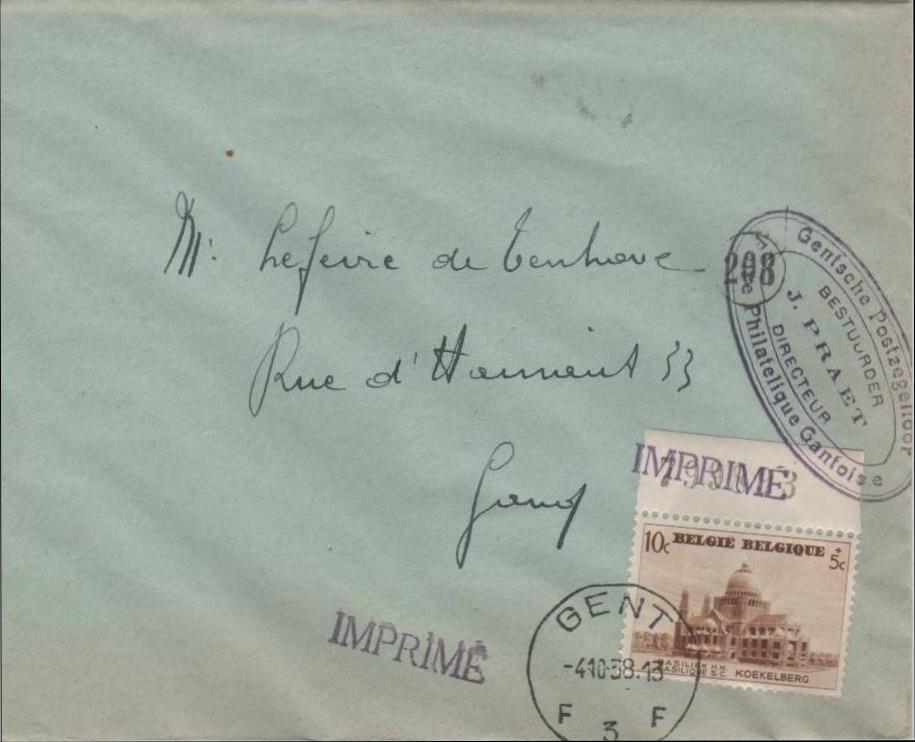 Mr: Lefeire de Tenhove
Rue d'Hannent 33
Gand
IMPRIMÉ
Gentsche Postzegelfoor
BESTUURDER
J. PRAET
DIRECTEUR
Philatelique Gantoise
208
IMPRIMÉ
10c BELGIË BELGIQUE + 5c
BASILIEK H.H.
BASILIQUE S.C. KOEKELBERG
GENT
-4.10.38.13
F 3 F